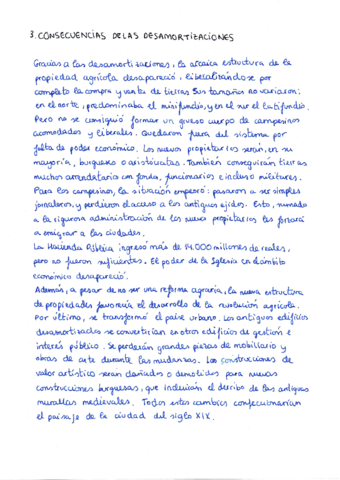 3. CONSECUENCIAS DE LAS DESAMORTIZACIONES
Gracias a las desamortizaciones, la arcaica estructura de la
propiedad agrícola desapareció, liberalizándose por
completo la compra y venta de tierras. Sus tamaños no variaron:
en el norte, predominaba el minifundio, y en el sur el latifundio.
Pero no se consiguió formar un grueso cuerpo de campesinos
acomodados y liberales. Quedaron fuera del sistema por
falta de poder económico. Los nuevos propietarios serán, en su
mayoría, burgueses o aristócratas. También conseguirán tierras
muchos arrendatarios con fondos, funcionarios e incluso militares.
Para los campesinos, la situación empeoró: pasaron a ser simples
jornaleros, y perdieron el acceso a los antiguos ejidos. Esto, sumado
a la rigurosa administración de los nuevos propietarios les forzará
a emigrar a las ciudades.
La Hacienda Pública ingresó más de 14.000 millones de reales,
pero no fueron suficientes. El poder de la Iglesia en el ámbito
económico desapareció.
Además, a pesar de no ser una reforma agraria, la nueva estructura
de propiedades favorecía el desarrollo de la revolución agrícola.
Por último, se transformó el paisaje urbano. Los antiguos edificios
desamortizados se convertirían en otros edificios de gestión e
interés público. Se perderán grandes piezas de mobiliario y
obras de arte durante las mudanzas. Las construcciones de
valor artístico serán dañadas o demolidas para nuevas
construcciones burguesas, que incluirán el derribo de las antiguas
murallas medievales. Todos estos cambios confeccionarían
el paisaje de la ciudad del siglo XIX.